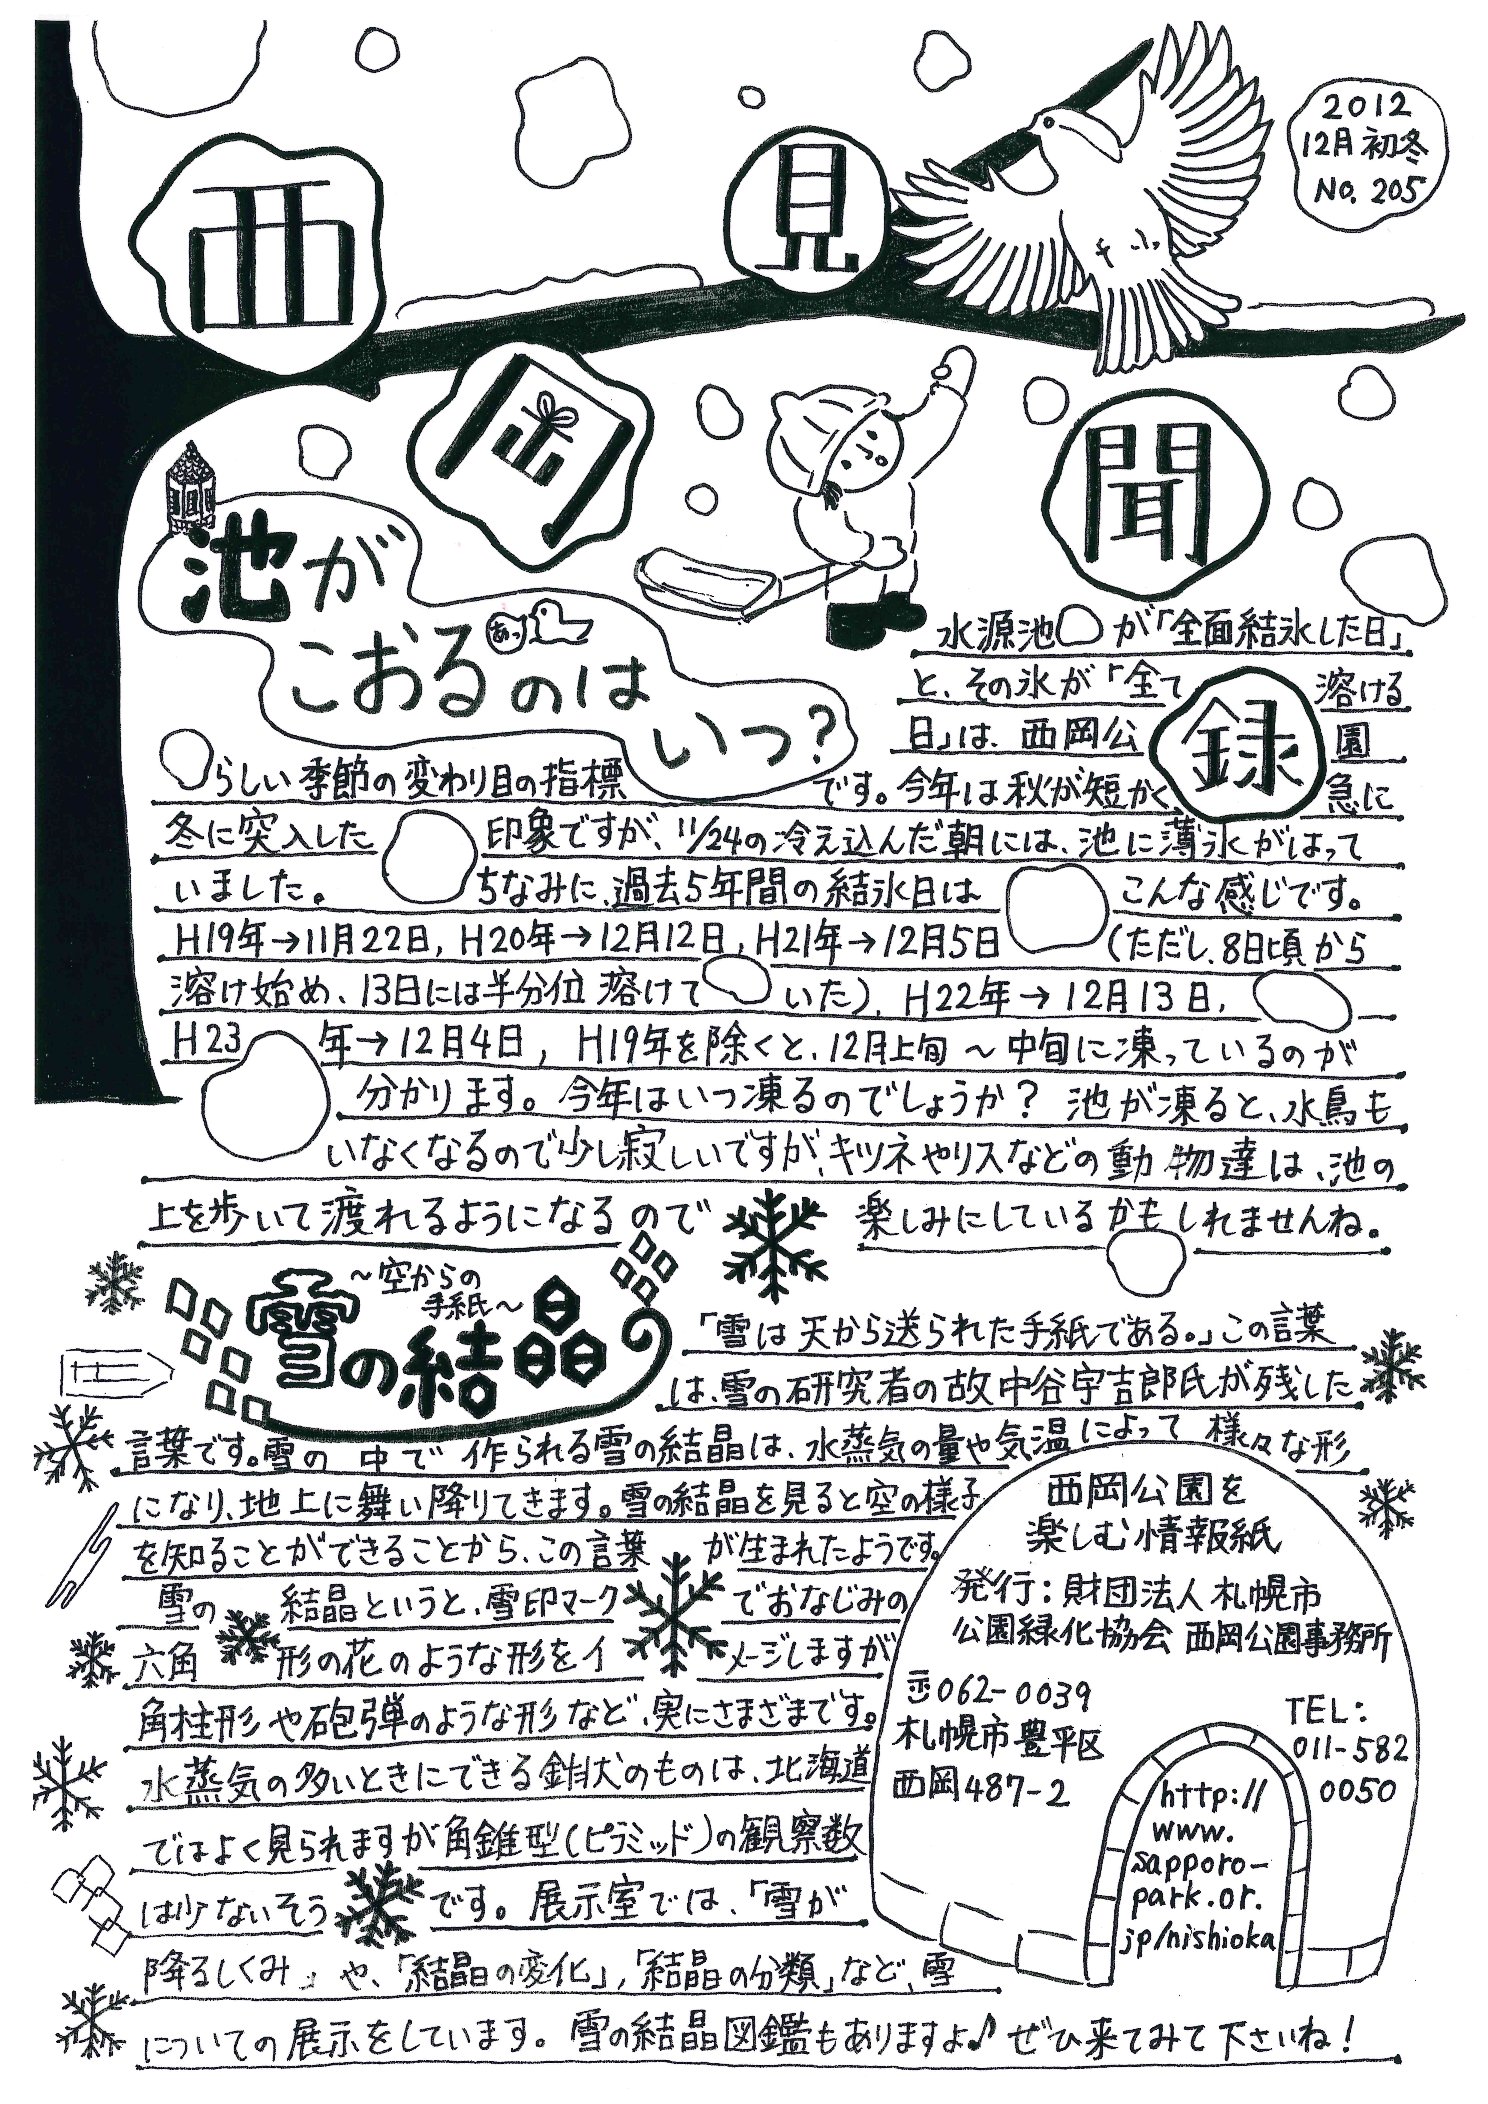 2012
12月 初冬
No. 205
西岡見聞録
池が
こおるのは
あっ
いつ？
水源池が「全面結氷した日」
と、その氷が「全て溶ける
日」は、西岡公園
らしい季節の変わり目の指標です。今年は秋が短かく、急に
冬に突入した印象ですが、11/24の冷え込んだ朝には、池に薄氷がはって
いました。ちなみに、過去5年間の結氷日はこんな感じです。
H19年→11月22日, H20年→12月12日, H21年→12月5日(ただし、8日頃から
溶け始め、13日には半分位溶けていた), H22年→12月13日,
H23年→12月4日, H19年を除くと、12月上旬～中旬に凍っているのが
分かります。今年はいつ凍るのでしょうか？ 池が凍ると、水鳥も
いなくなるので少し寂しいですが、キツネやリスなどの動物達は、池の
上を歩いて渡れるようになるので楽しみにしているかもしれませんね。
～空からの
手紙～
雪の結晶
「雪は天から送られた手紙である。」この言葉
は、雪の研究者の故中谷宇吉郎氏が残した
言葉です。雪の中で作られる雪の結晶は、水蒸気の量や気温によって様々な形
になり、地上に舞い降りてきます。雪の結晶を見ると空の様子
を知ることができることから、この言葉が生まれたようです。
雪の結晶というと、雪印マークでおなじみの
六角形の花のような形をイメージしますが
角柱形や砲弾のような形など、実にさまざまです。
水蒸気の多いときにできる針状のものは、北海道
ではよく見られますが角錐型(ピラミッド)の観察数
は少ないそうです。展示室では、「雪が
降るしくみ」や、「結晶の変化」,「結晶の分類」など、雪
についての展示をしています。雪の結晶図鑑もありますよ♪ ぜひ来てみて下さいね！
西岡公園を
楽しむ情報紙
発行：財団法人札幌市
公園緑化協会 西岡公園事務所
〒062-0039
札幌市豊平区
西岡487-2
TEL：
011-582
0050
http://
www.
sapporo-
park.or.
jp/nishioka